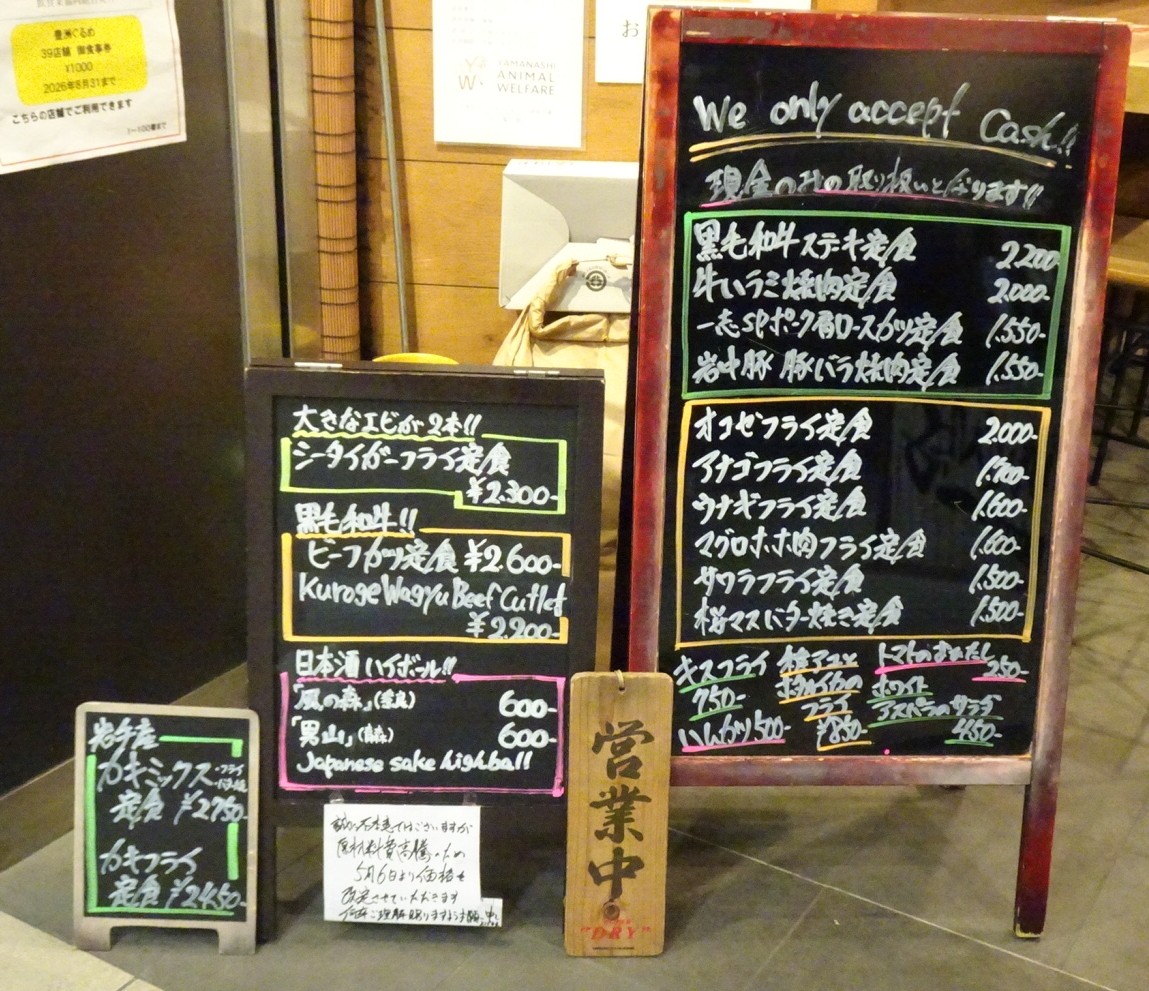 豊洲ぐるめ
39店舗 御食事券
¥1000
2026年8月31まで
こちらの店舗でご利用できます
YAMANASHI
ANIMAL
WELFARE
お
We only accept Cash!!
現金のみの取り扱いとなります!!
黒毛和牛ステーキ定食 2.200-
牛ハラミ焼肉定食 2.000-
一志SPポーク肩ロースカツ定食 1.550-
岩中豚 豚バラ焼肉定食 1.550-
オコゼフライ定食 2.000-
アナゴフライ定食 1.700-
ウナギフライ定食 1.600-
マグロホホ肉フライ定食 1.600-
サワラフライ定食 1.500-
桜マスバター焼き定食 1.500-
キスフライ
750-
ハムカツ 500-
ホタルイカの
フライ
¥850-
トマトのおひたし
250-
ホワイト
アスパラのサラダ
450-
大きなエビが2本!!
シータイガーフライ定食
¥2.300-
黒毛和牛!!
ビーフカツ定食 ¥2.600-
Kuroge Wagyu Beef Cutlet
¥2.200-
日本酒ハイボール!!
「風の森」(奈良) 600-
「男山」 600-
Japanese sake highball
岩手産
カキミックス・フライ
定食 ¥2750-
カキフライ
定食 ¥2450-
誠に不本意ではございますが
原材料費高騰のため
5月6日より価格を
改定させていただきます
何卒ご理解賜りますようお願い申し
営業中
"DRY"